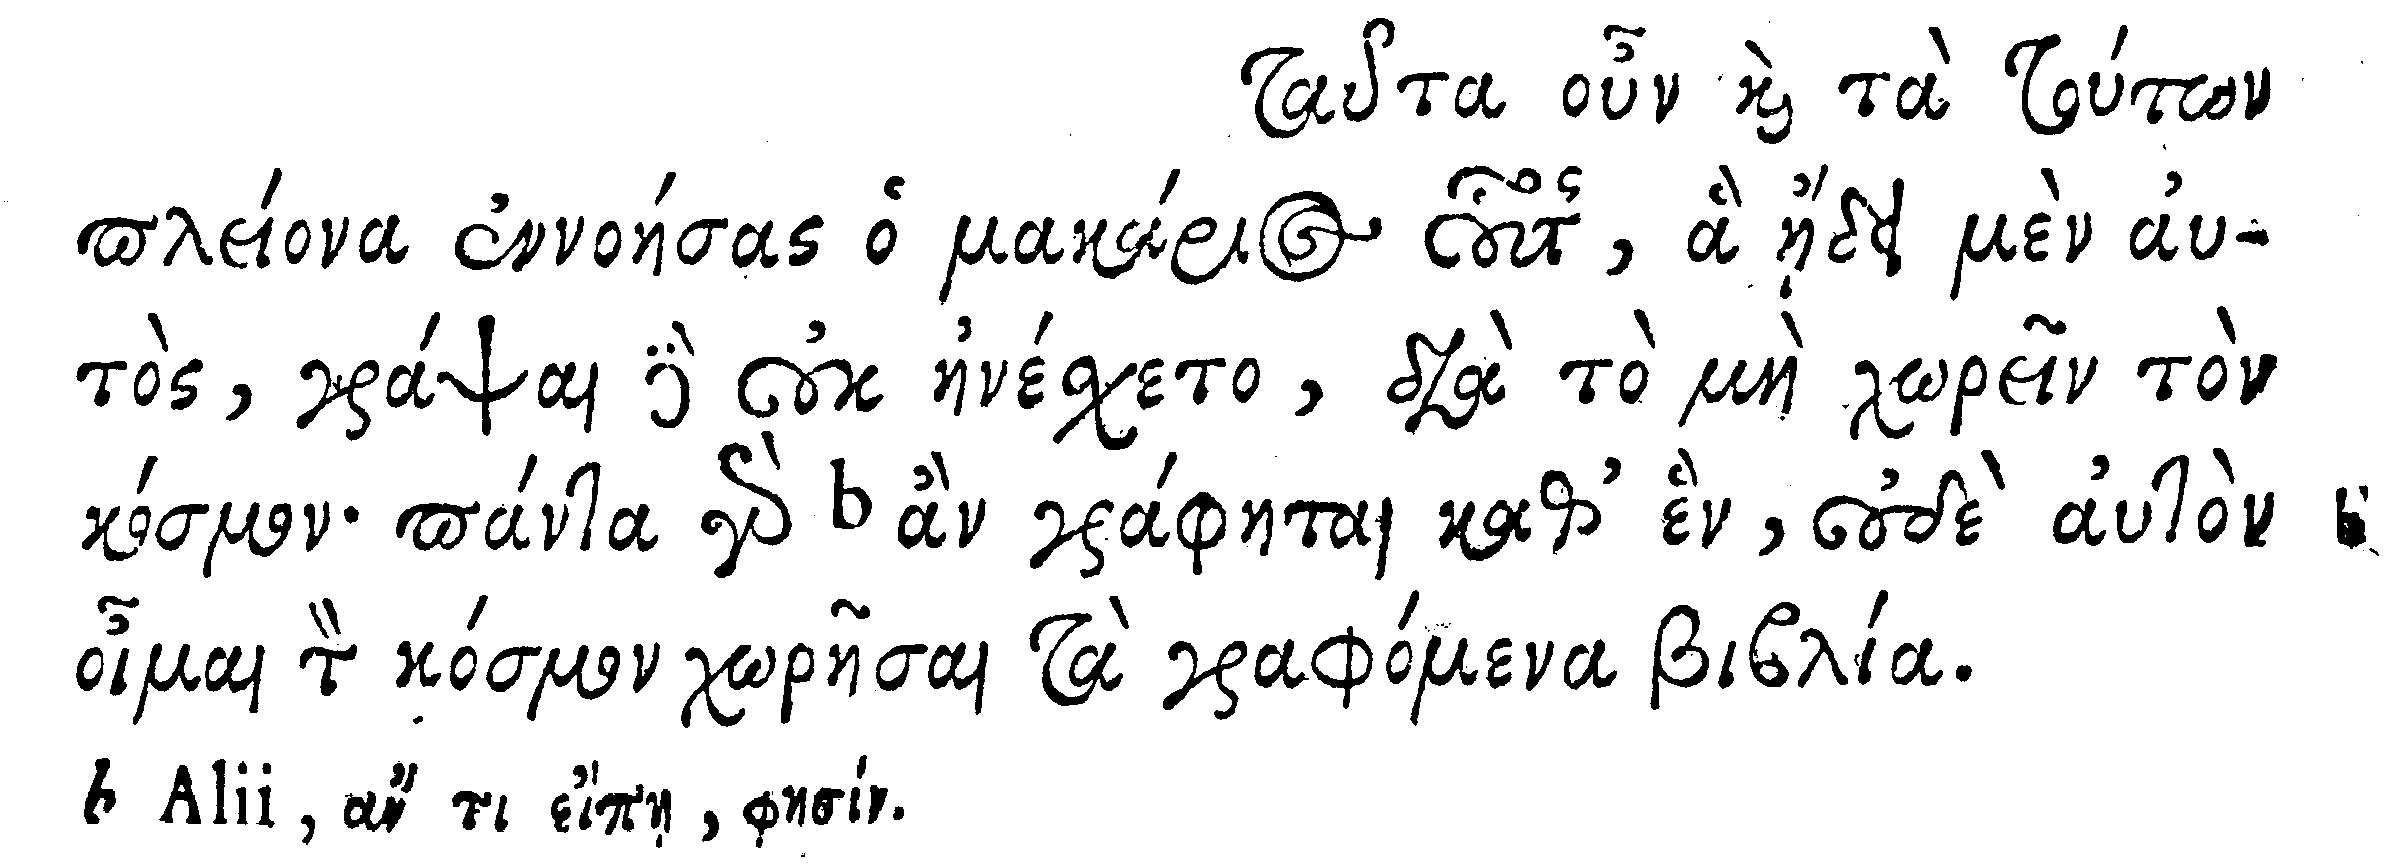 ταῦτα οὖν καὶ τὰ τούτων
πλείονα ἐννοήσας ὁ μακάριος οὗτος, ἃ ᾔδει μὲν αὐ-
τὸς, γράψαι δὲ οὐκ ἠνέχετο, διὰ τὸ μὴ χωρεῖν τὸν
κόσμον· πάντα γὰρ b ἂν γράφηται καθ’ ἓν, οὐδὲ αὐτὸν b
οἶμαι τὸν κόσμον χωρῆσαι τὰ γραφόμενα βιβλία.
b Alii, ἄν τι εἴπῃ, φησίν.